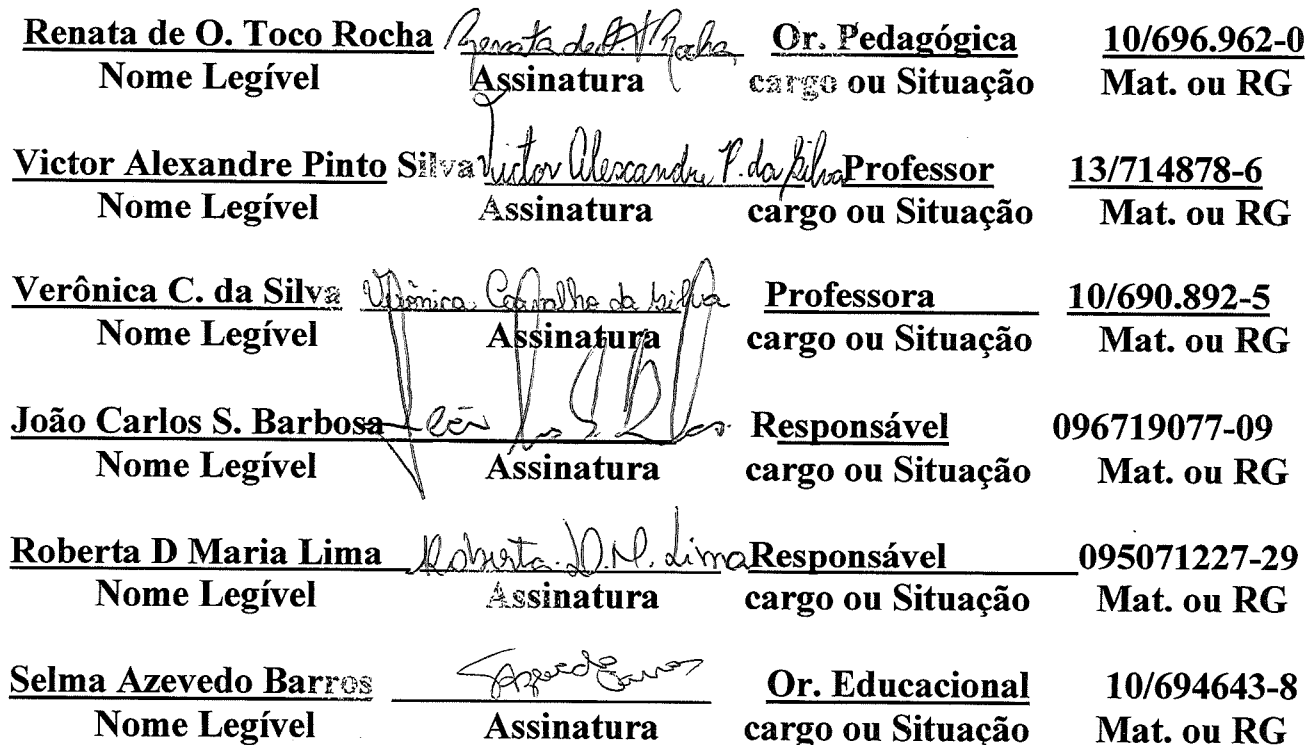 Renata de O. Toco Rocha Renata de O. T Rocha Or. Pedagógica 10/696.962-0
Nome Legível Assinatura cargo ou Situação Mat. ou RG
Victor Alexandre Pinto Silva Victor Alexandre P. da Silva Professor 13/714878-6
Nome Legível Assinatura cargo ou Situação Mat. ou RG
Verônica C. da Silva Verônica Carvalho da Silva Professora 10/690.892-5
Nome Legível Assinatura cargo ou Situação Mat. ou RG
João Carlos S. Barbosa Responsável 096719077-09
Nome Legível Assinatura cargo ou Situação Mat. ou RG
Roberta D Maria Lima Roberta. D. M. Lima Responsável 095071227-29
Nome Legível Assinatura cargo ou Situação Mat. ou RG
Selma Azevedo Barros Or. Educacional 10/694643-8
Nome Legível Assinatura cargo ou Situação Mat. ou RG